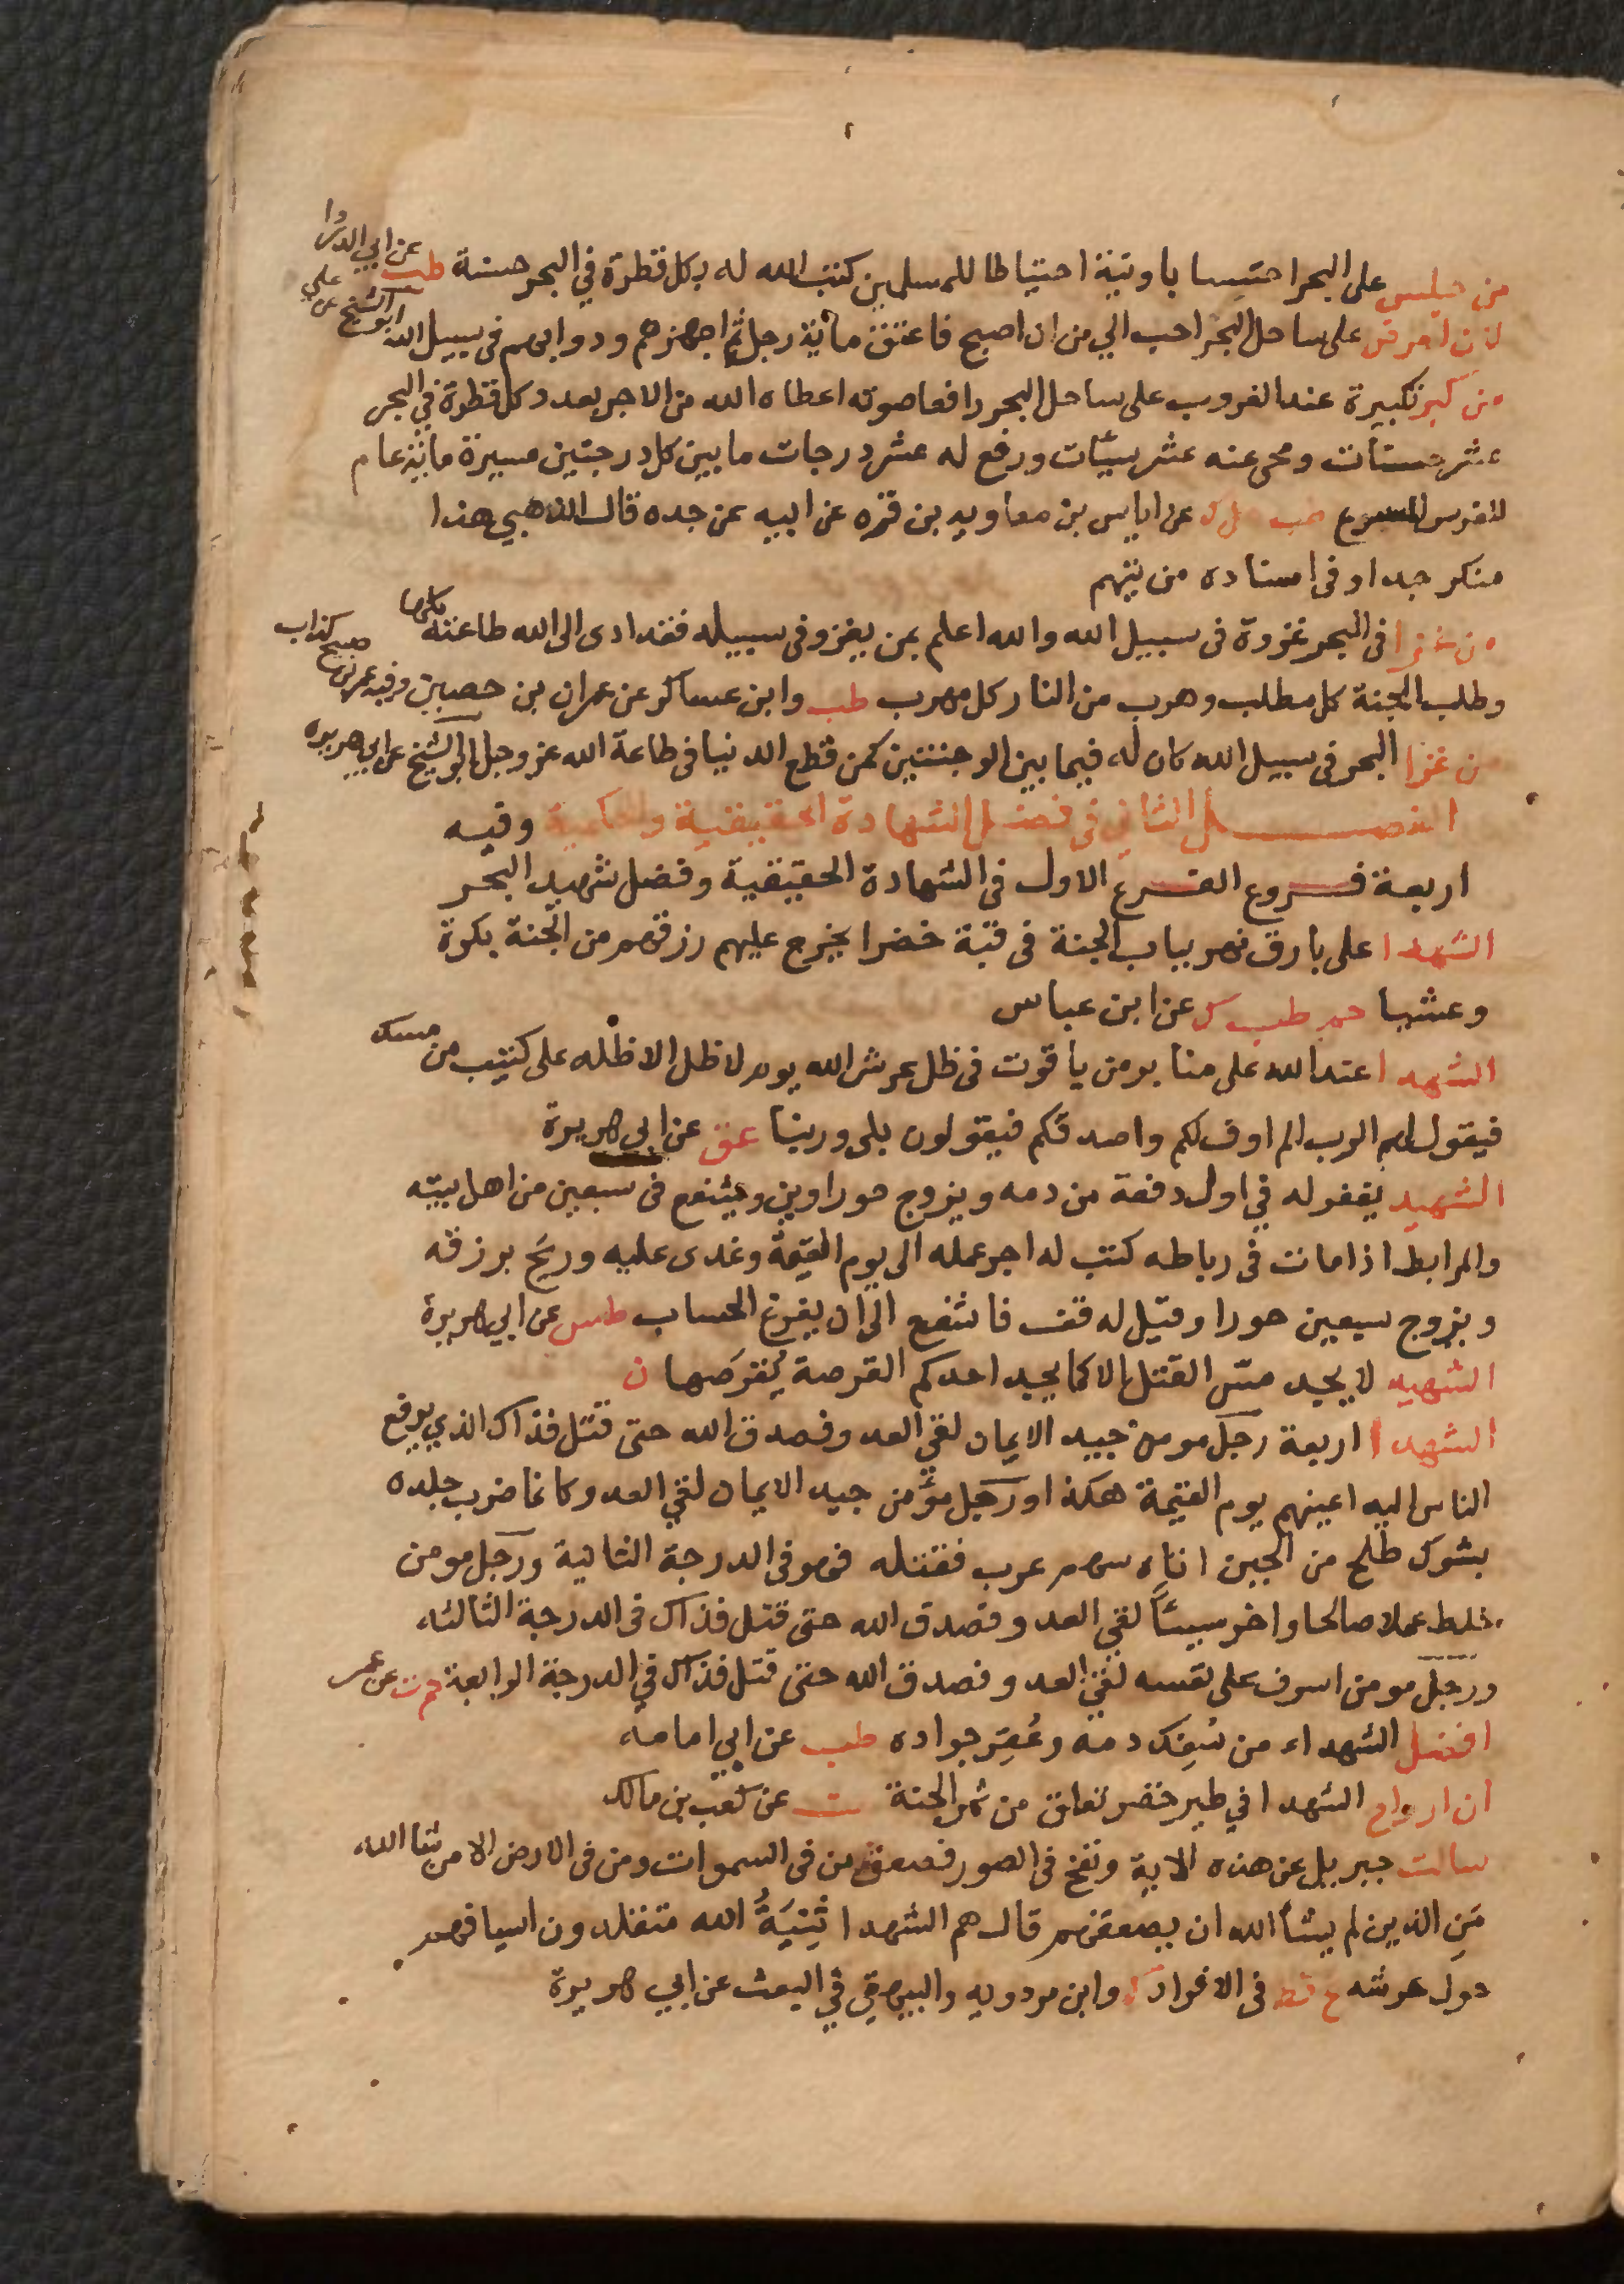 من جلس على البحر احتسابا ونية احتياطا للمسلمين كتب الله له بكل قطرة في البحر حسنة طب عن ابي الدردا
لان احرس على ساحل البحر احب الي من ان اصبح فاعتق مائة رجل ثم اجهزهم ودوابهم في سبيل الله ابو الشيخ عن علي
من كبر تكبيرة عند الغروب على ساحل البحر رافعا صوته اعطاه الله من الاجر بعدد كل قطرة في البحر
عشر حسنات ومحى عنه عشر سيئات ورفع له عشر درجات ما بين كل درجتين مسيرة مائة عام
للفرس المسرع طب حل ك عن اياس بن معاويه بن قره عن ابيه عن جده قال الذهبي هذا
منكر جدا وفي اسناده من يتهم
من غزا في البحر غزوة في سبيل الله والله اعلم بمن يغزو في سبيله فقد ادى الى الله طاعته كلها
وطلب الجنة كل مطلب وهرب من النار كل مهرب طب وابن عساكر عن عمران بن حصين وفيه عمر بن صبح كذاب
من غزا البحر في سبيل الله كان له فيما بين الموجتين كمن قطع الدنيا في طاعة الله عز وجل ابو الشيخ عن ابي هريره
الفصل الثاني في فضل الشهادة الحقيقية والحكمية وفيه
اربعة فروع الفرع الاول في الشهادة الحقيقية وفضل شهيد البحر
الشهدا على بارق نهر بباب الجنة في قبة خضرا يخرج عليهم رزقهم من الجنة بكرة
وعشيا حم طب ك عن ابن عباس
الشهدا عند الله على منابر من ياقوت في ظل عرش الله يوم لا ظل الا ظله على كثيب من مسك
فيقول لهم الرب الم اوف لكم واصدقكم فيقولون بلى وربنا عق عن ابي هريرة
الشهيد يغفر له في اول دفعة من دمه ويزوج حوراوين ويشفع في سبعين من اهل بيته
والمرابط اذا مات في رباطه كتب له اجر عمله الى يوم القيمة وغدى عليه وريح برزقه
ويزوج سبعين حورا وقيل له قف فاشفع الى ان يفرغ الحساب طس عن ابي هريرة
الشهيد لا يجد مس القتل الا كما يجد احدكم القرصة يُقرَصها ن
الشهدا اربعة رجل مومن جيد الايمان لقي العدو فصدق الله حتى قتل فذاك الذي يرفع
الناس اليه اعينهم يوم القيمة هكذا ورجل مؤمن جيد الايمان لقي العدو كانما ضرب جلده
بشوك طلح من الجبن اتاه سهم غرب فقتله فهو في الدرجة الثانية ورجل مومن
خلط عملا صالحا واخر سيئاً لقي العدو فصدق الله حتى قتل فذاك في الدرجة الثالثه
ورجل مومن اسرف على نفسه لقي العدو فصدق الله حتى قتل فذاك في الدرجة الرابعة حم ت عن عمر
افضل الشهداء من سُفِك دمه وعُقِر جواده طب عن ابي امامه
ان ارواح الشهدا في طير خضر تعلق من ثمر الجنة ت عن كعب بن مالك
سالت جبريل عن هذه الاية ونفخ في الصور فصعق من في السموات ومن في الارض الا من شا الله
مَنِ الذين لم يشأ الله ان يصعقهم قال هم الشهدا ثَنِيَّةُ الله متقلدون اسيافهم
حول عرشه ع قط في الافراد ك وابن مردويه والبيهقي في البعث عن ابي هريرة